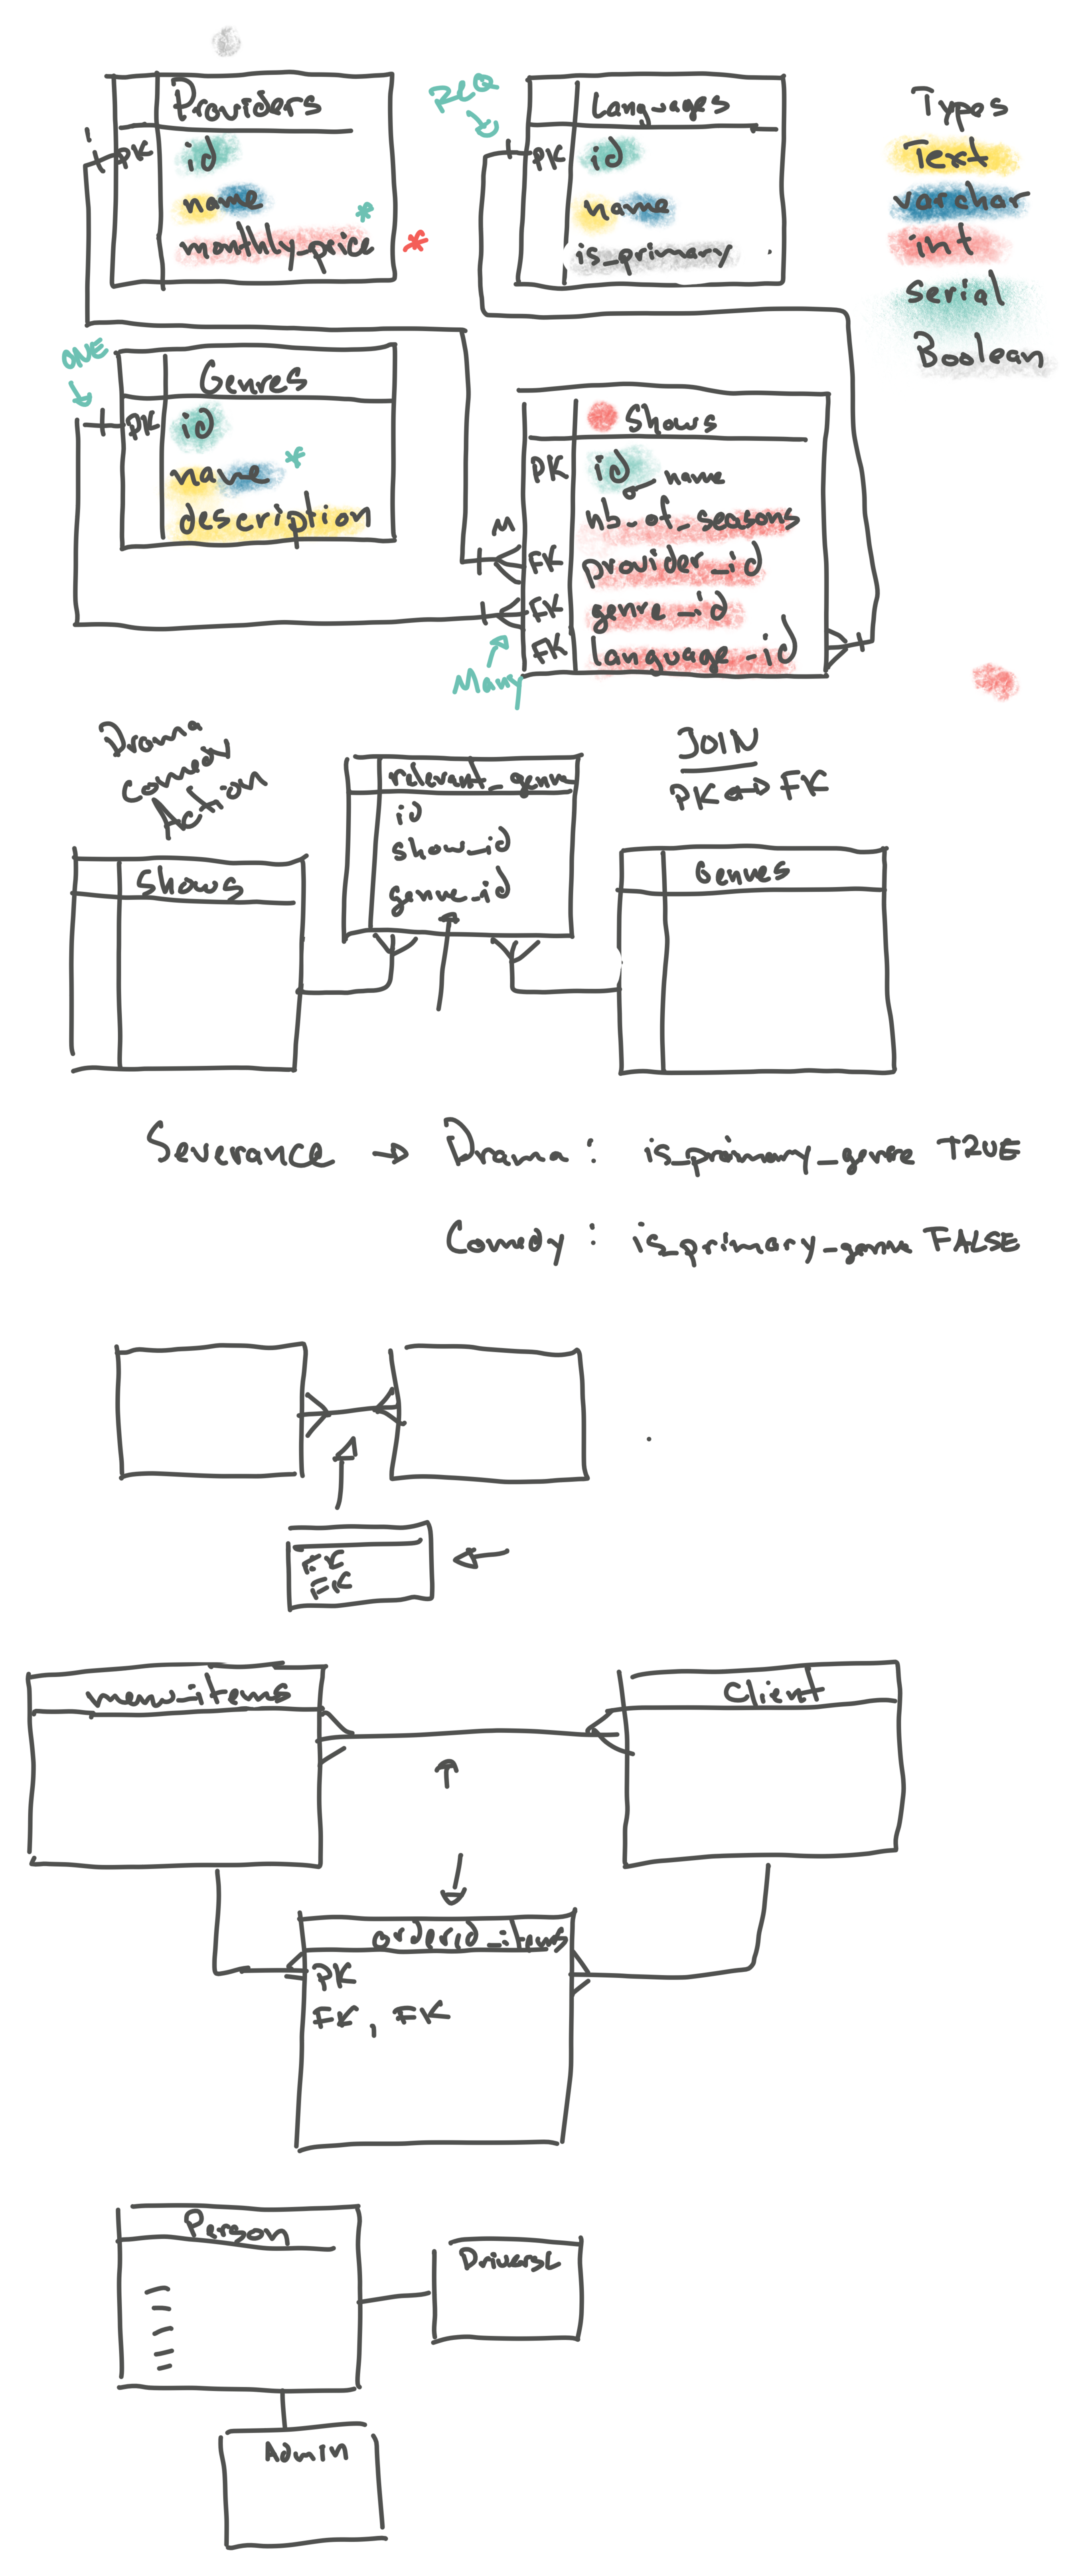 Providers
PK id
name
monthly_price
*
*
REQ
Languages
PK id
name
is_primary
Types
Text
varchar
int
serial
Boolean
ONE
Genres
PK id
name
*
description
Shows
PK id
name
nb_of_seasons
M
FK provider_id
FK genre_id
FK language_id
Many
Drama
Comedy
Action
relevant_genre
id
show_id
genre_id
JOIN
PK ↔ FK
Shows
Genres
Severance → Drama : is_primary_genre TRUE
Comedy : is_primary_genre FALSE
FK
FK
menu_items
Client
orderid_items
PK
FK, FK
Person
DriversL
Admin